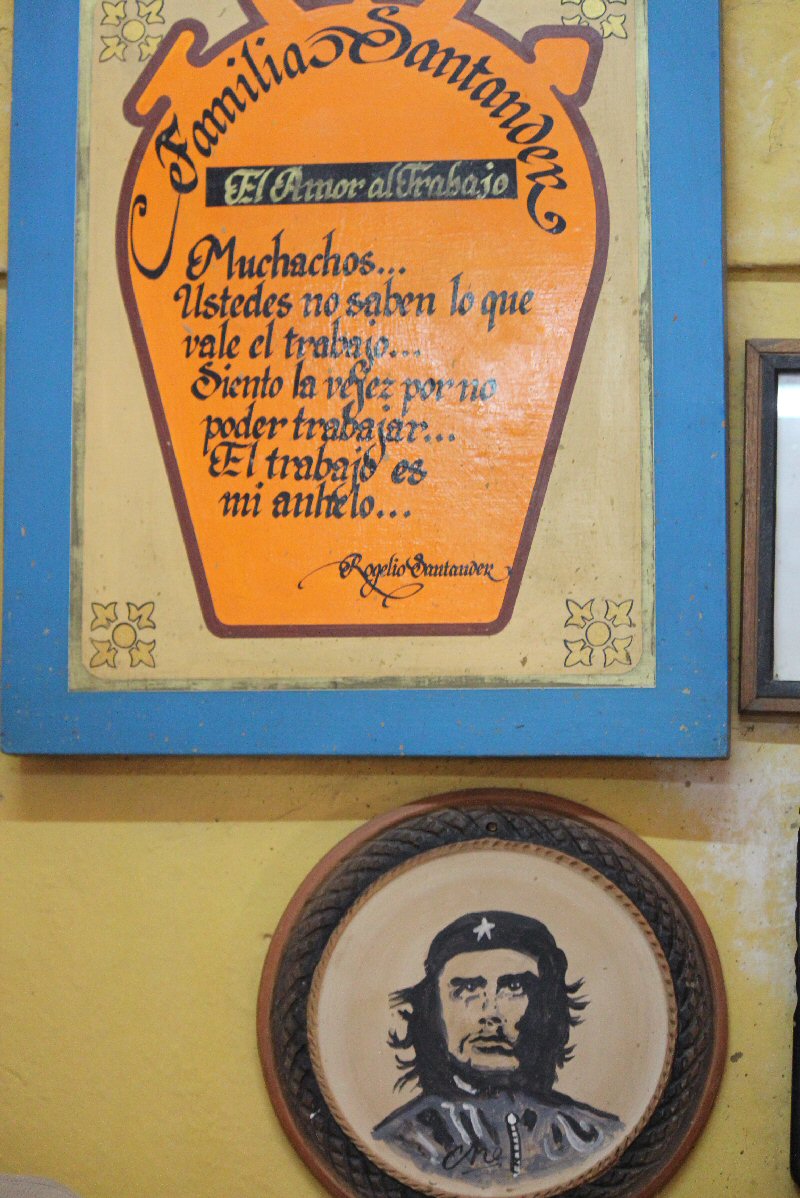 Familia Santander
El Amor al Trabajo
Muchachos...
Ustedes no saben lo que
vale el trabajo...
Siento la vejez por no
poder trabajar...
El trabajo es
mi anhelo...
Rogelio Santander
Che